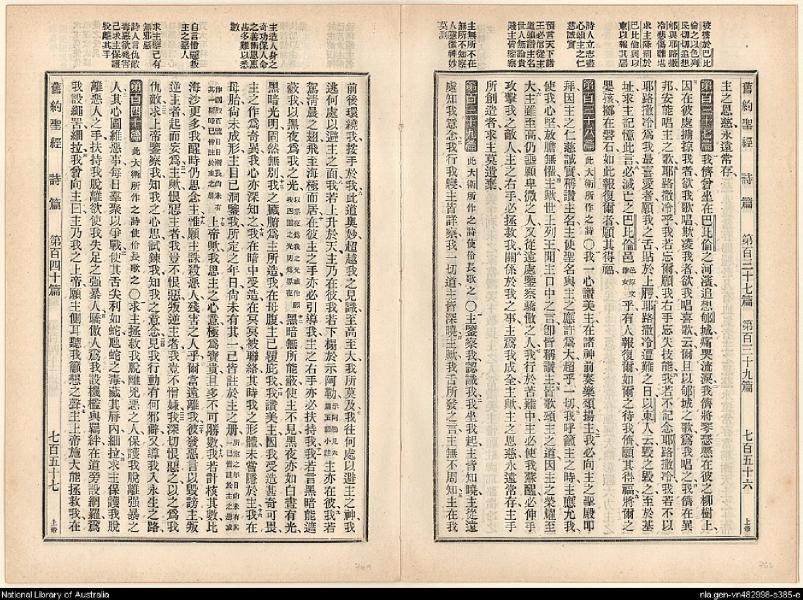 舊約聖經 詩篇 第百三十七篇 第百三十九篇 七百五十六 上帝
主之恩慈永遠常存
第百三十七篇 我儕曾坐在巴比倫之河濱追想郇城痛哭流淚我儕將琴瑟懸在彼之柳樹上
因在彼處擄掠我者欲我歌唱欺凌我者欲我唱喜歌云爾且以郇城之歌為我唱之我儕在異
邦安能唱主之歌耶路撒冷乎我若忘爾願我右手忘失技能我若不記念耶路撒冷我若不以
耶路撒冷為我最喜愛者願我之舌貼於上膛耶路撒冷遭難之日以東人云毀之毀之至於基
址求主記憶此言必滅亡之巴比倫邑乎有人報復爾如爾之待我儕願其得福將爾之
嬰孩擲在磐石如此報復爾者願其得福
第百三十八篇 此大衛所作之詩○我一心讚美主在諸神前奏樂頌揚主我必向主之聖殿叩
拜因主之仁慈誠實稱讚主名主使聖名與主之應許為大超乎一切我呼籲主之時主應允我
使我心放膽無懼主歟世上列王聞主口中之言即皆稱讚主皆歌頌主之道因主之榮耀至
大主雖至高仍垂顧卑微之人又從遠處鑒察驕傲之人我行於苦難中主必使我蘇醒必伸手
攻擊我之敵人主之右手必拯救我關係於我之事主為我成全主歟主之恩慈永遠常存主手
所創造者求主莫遺棄
第百三十九篇 此大衛所作之詩使伶長歌之○主鑒察我認識我我坐我起主皆知曉主從遠
處知我意念我行我寢主皆詳察我一切道主皆深曉主歟我舌所發之言主無不周知主在我
前後環繞我按手於我此道奧妙超越我之見識至高至大我所莫及我往何處以避主之神我
逃何處以避主之面我若上升於天主乃在彼我若下榻於示阿勒主亦在彼我若
駕清晨之超飛至海極而居在彼主之手亦必引導我主之右手亦必扶持我我若言黑暗能遮
蔽我以黑夜為我之光黑暗無所能蔽使主不見黑夜亦如白晝有光
黑暗光明固然無別我之臟腑為主所造我在母腹主已覆庇我我讚美主因我受造甚奇可畏
主之作為奇異我心亦深知之我在暗中受造在冥冥被聯絡其時我之形體未嘗隱於主我在
母胎尚未成形主目已洞鑒我所定之年日尚未有其一已皆註於主之冊
上帝歟我思主之心意極為寶貴且多不可勝數我若計核其數比
海沙更多我醒時仍思念主惟願主誅殺惡人殘害之人乎爾當遠離我彼發惡言以毀謗主叛
逆主者起而妄為主歟恨惡主者我豈不恨惡叛逆主者我豈不憎嫌我深切恨惡之以之為我
仇敵求上帝鑒察我知我之心思試鍊我知我之意念見我行動有何邪僻又導我入永生之路
第百四十篇 此大衛所作之詩使伶長歌之○求主拯救我脫離兇惡之人保護我脫離強暴之
人其心圖維惡事每日羣聚以爭戰使其舌尖利如蛇虺蛇之毒藏其唇內細拉求主保護我脫
離惡人之手扶持我脫離欲使我失足之強暴人驕傲人為我設機檻與羈絆在道旁設網羅為
我設繩罟細拉我曾向主曰主乃我之上帝願主側耳聽我籲懇之聲主上帝施大能拯救我在
舊約聖經 詩篇 第百四十篇 七百五十七 上帝
National Library of Australia
nla.gen-vn482998-s385-e